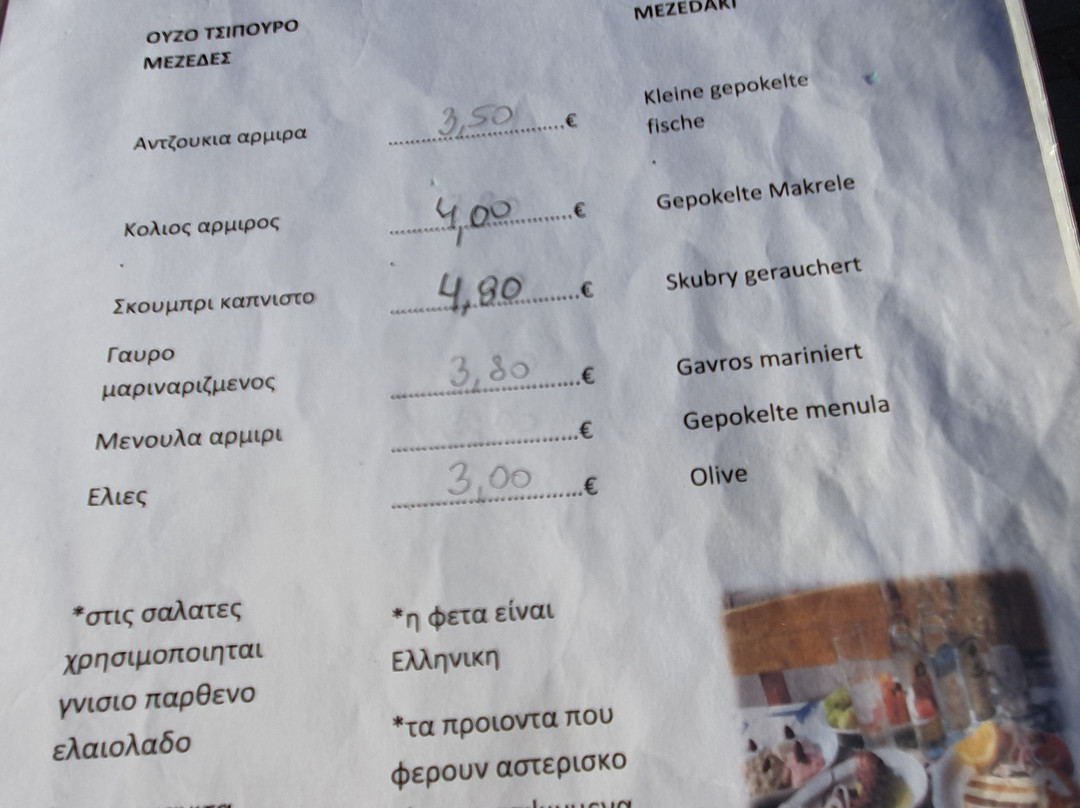 ΟΥΖΟ ΤΣΙΠΟΥΡΟ
ΜΕΖΕΔΕΣ
MEZEDAKI
Αντζουκια αρμιρα 3,50 €
Kleine gepokelte
fische
Κολιος αρμιρος 4,00 €
Gepokelte Makrele
Σκουμπρι καπνιστο 4,80 €
Skubry gerauchert
Γαυρο
μαριναριζμενος 3,80 €
Gavros mariniert
Μενουλα αρμιρι €
Gepokelte menula
Ελιες 3,00 €
Olive
*στις σαλατες
χρησιμοποιηται
γνισιο παρθενο
ελαιολαδο
*η φετα είναι
Ελληνικη
*τα προιοντα που
φερουν αστερισκο